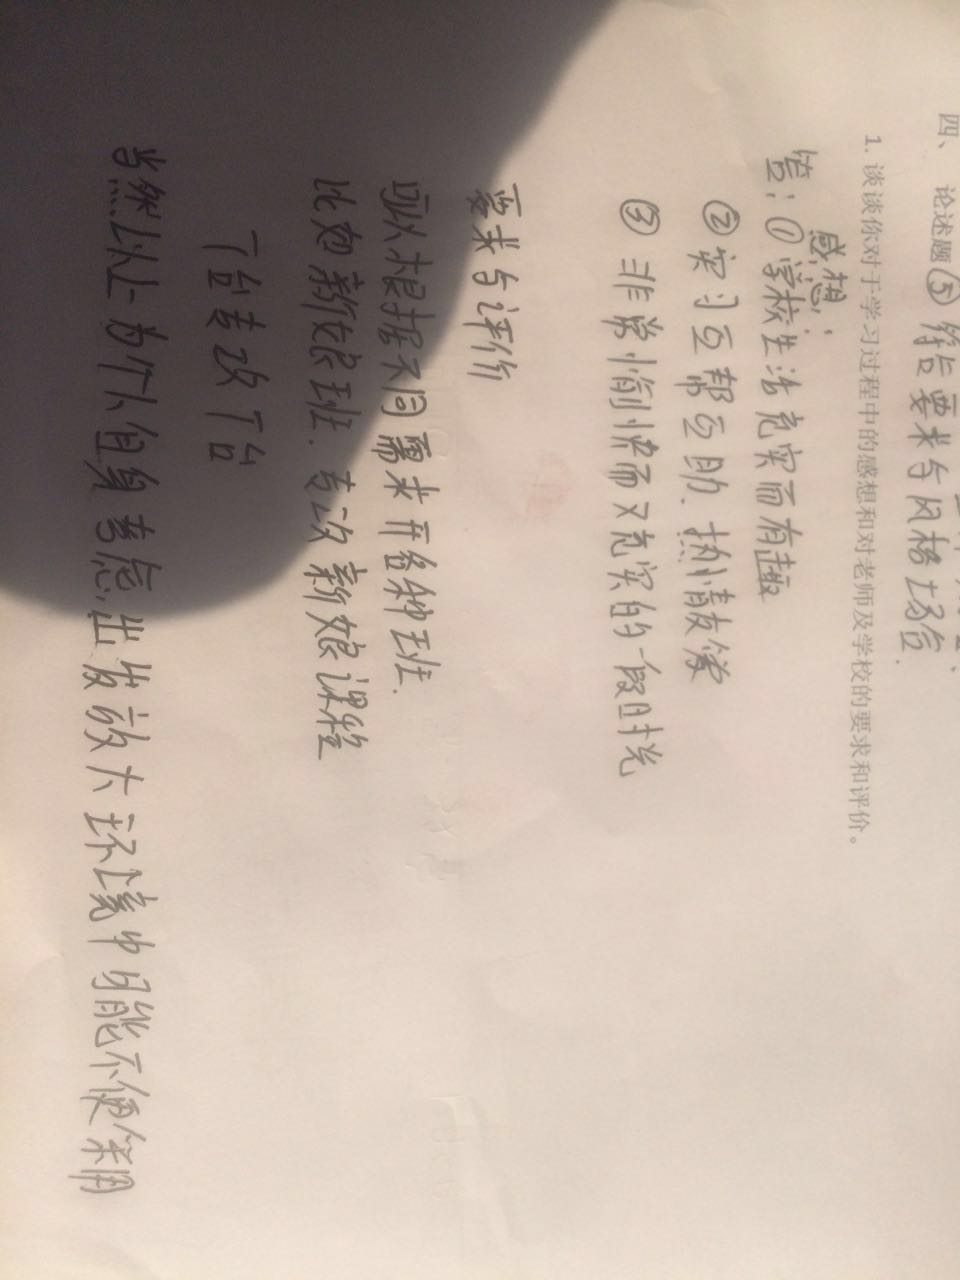 四、 论述题 ⑤ 符合要求与风格场合.
1. 谈谈你对于学习过程中的感想和对老师及学校的要求和评价。
感想:
答:①学校生活充实而有趣
②实习互帮互助.热情友爱
③非常愉快而又充实的一段时光
要求与评价
可以根据不同需求开各种班.
比如新娘班.专攻新娘课程
T台专攻T台
当然以上为个人自身考虑出发放大环境中可能不便采用